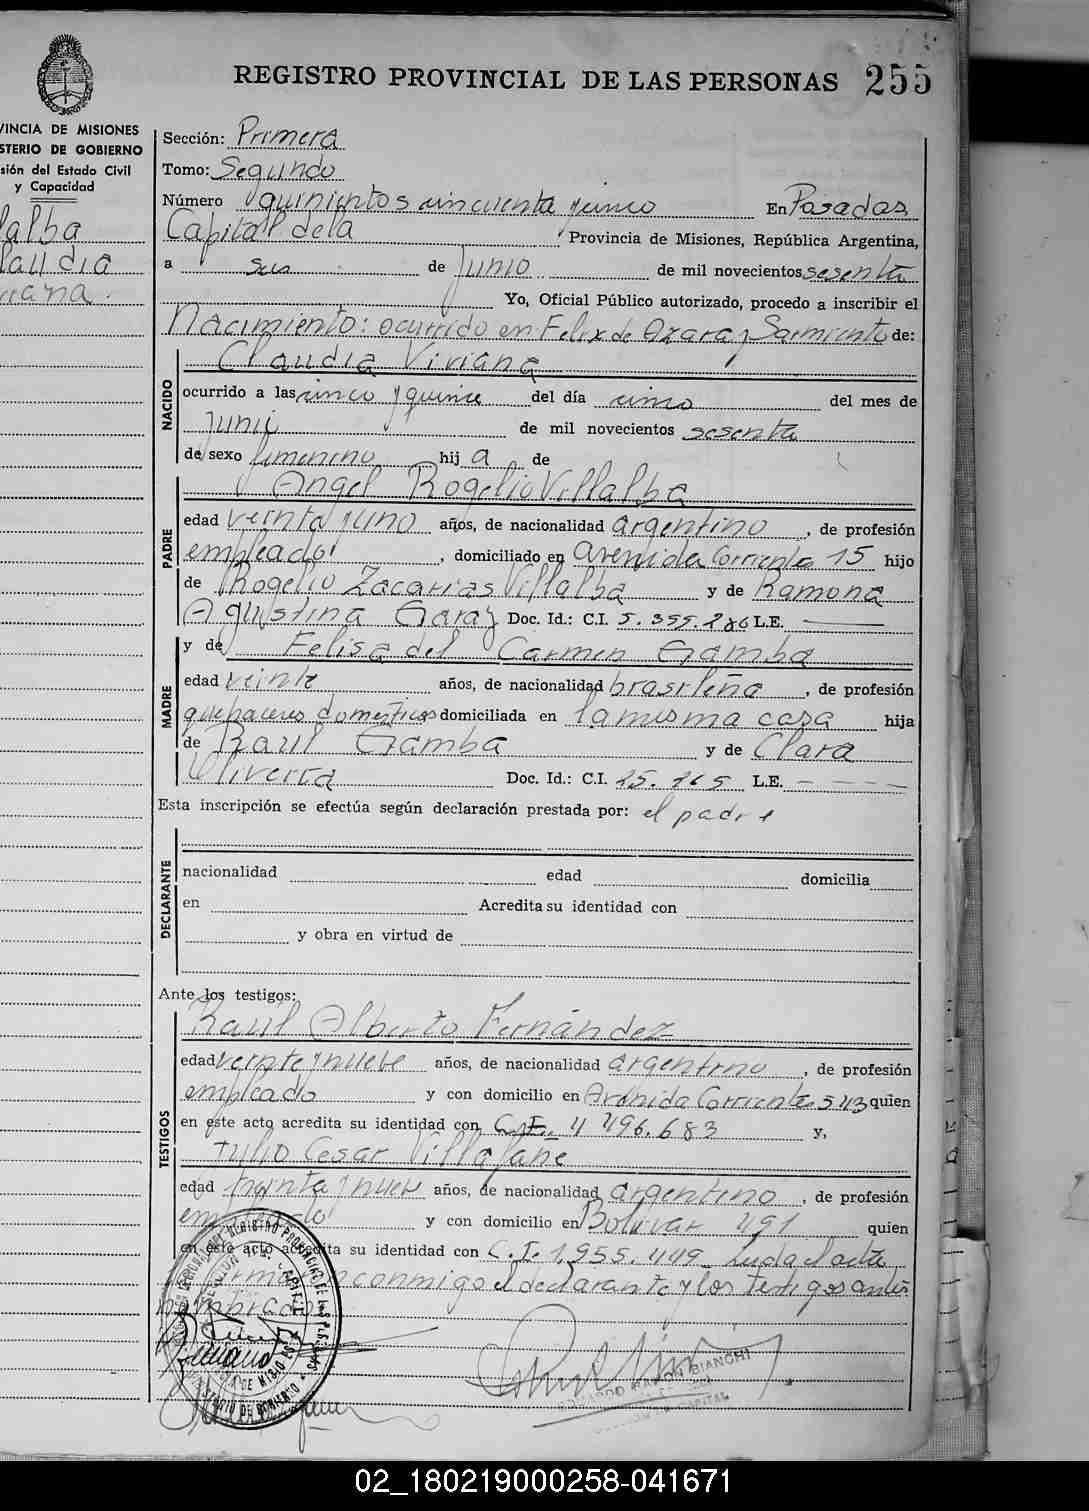 REGISTRO PROVINCIAL DE LAS PERSONAS 255
VINCIA DE MISIONES
STERIO DE GOBIERNO
sión del Estado Civil
y Capacidad
lalba
laudia
iana.
Sección: Primera
Tomo: Segundo
Número quinientos cincuenta y cinco En Posadas
Capital de la Provincia de Misiones, República Argentina,
a seis de Junio de mil novecientos sesenta
Yo, Oficial Público autorizado, procedo a inscribir el
Nacimiento: ocurrido en Felix de Azara y Sarmiento de:
NACIDO
Claudia Viviana
ocurrido a las cinco y quince del día cinco del mes de
Junio de mil novecientos sesenta
de sexo femenino hija de
PADRE
Angel Rogelio Villalba
edad veinta y uno años, de nacionalidad argentino, de profesión
empleado, domiciliado en avenida Corrientes 15 hijo
de Rogelio Zacarias Villalba y de Ramona
Agustina Garay Doc. Id.: C.I. 5.355.286 L.E.
MADRE
y de Felisa del Carmen Gamba
edad veinte años, de nacionalidad brasileña, de profesión
quehaceres domesticos domiciliada en la misma casa hija
de Raúl Gamba y de Clara
Oliveira Doc. Id.: C.I. 25.765 L.E.
Esta inscripción se efectúa según declaración prestada por: el padre
DECLARANTE
nacionalidad edad domicilia
en Acredita su identidad con
y obra en virtud de
Ante los testigos:
TESTIGOS
Raúl Alberto Fernández
edad veinte y nueve años, de nacionalidad argentino, de profesión
empleado y con domicilio en Avenida Corrientes 543 quien
en este acto acredita su identidad con C.I. 4 496.683 y,
Julio Cesar Villafañe
edad treinta y nueve años, de nacionalidad argentino, de profesión
empleado y con domicilio en Bolivar 491 quien
en este acto acredita su identidad con C.I. 1.955.449 leida el acta
firman conmigo el declarante y los testigos antes
nombrados
BIANCHI
CAPITAL
02_180219000258-041671